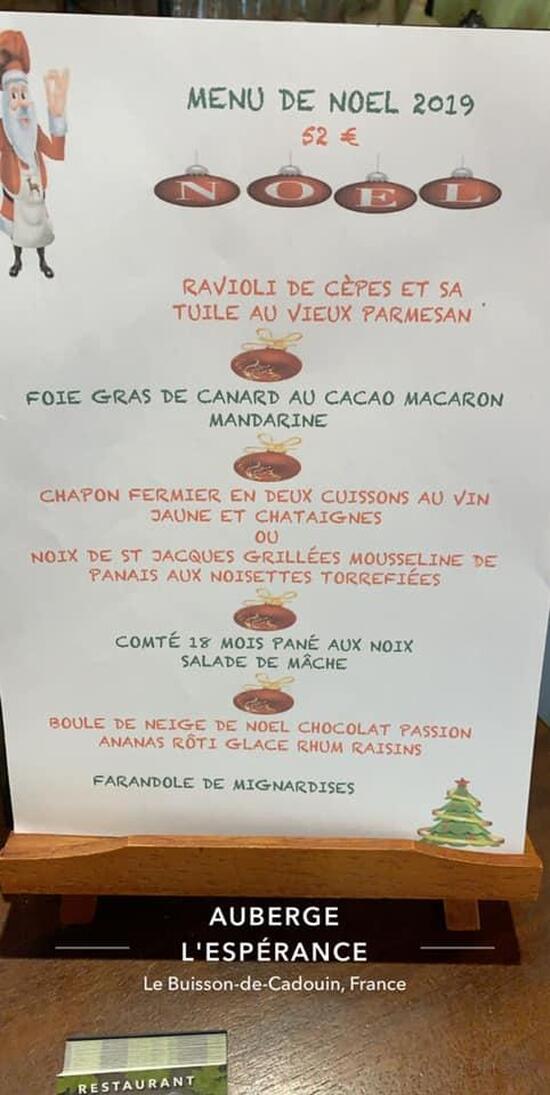 MENU DE NOEL 2019
52 €
NOEL
RAVIOLI DE CÈPES ET SA
TUILE AU VIEUX PARMESAN
FOIE GRAS DE CANARD AU CACAO MACARON
MANDARINE
CHAPON FERMIER EN DEUX CUISSONS AU VIN
JAUNE ET CHATAIGNES
OU
NOIX DE ST JACQUES GRILLÉES MOUSSELINE DE
PANAIS AUX NOISETTES TORREFIÉES
COMTÉ 18 MOIS PANÉ AUX NOIX
SALADE DE MÂCHE
BOULE DE NEIGE DE NOEL CHOCOLAT PASSION
ANANAS RÔTI GLACE RHUM RAISINS
FARANDOLE DE MIGNARDISES
AUBERGE
L'ESPÉRANCE
Le Buisson-de-Cadouin, France
RESTAURANT